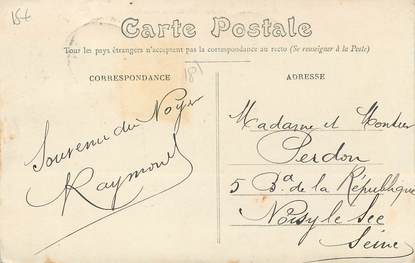 15t
Carte Postale
Tous les pays étrangers n'acceptent pas la correspondance au recto (Se renseigner à la Poste)
CORRESPONDANCE
ADRESSE
Souvenir du Noyer
Raymond
Madame et Monsieur
Perdon
5 Bd de la République
Noisy le Sec
Seine